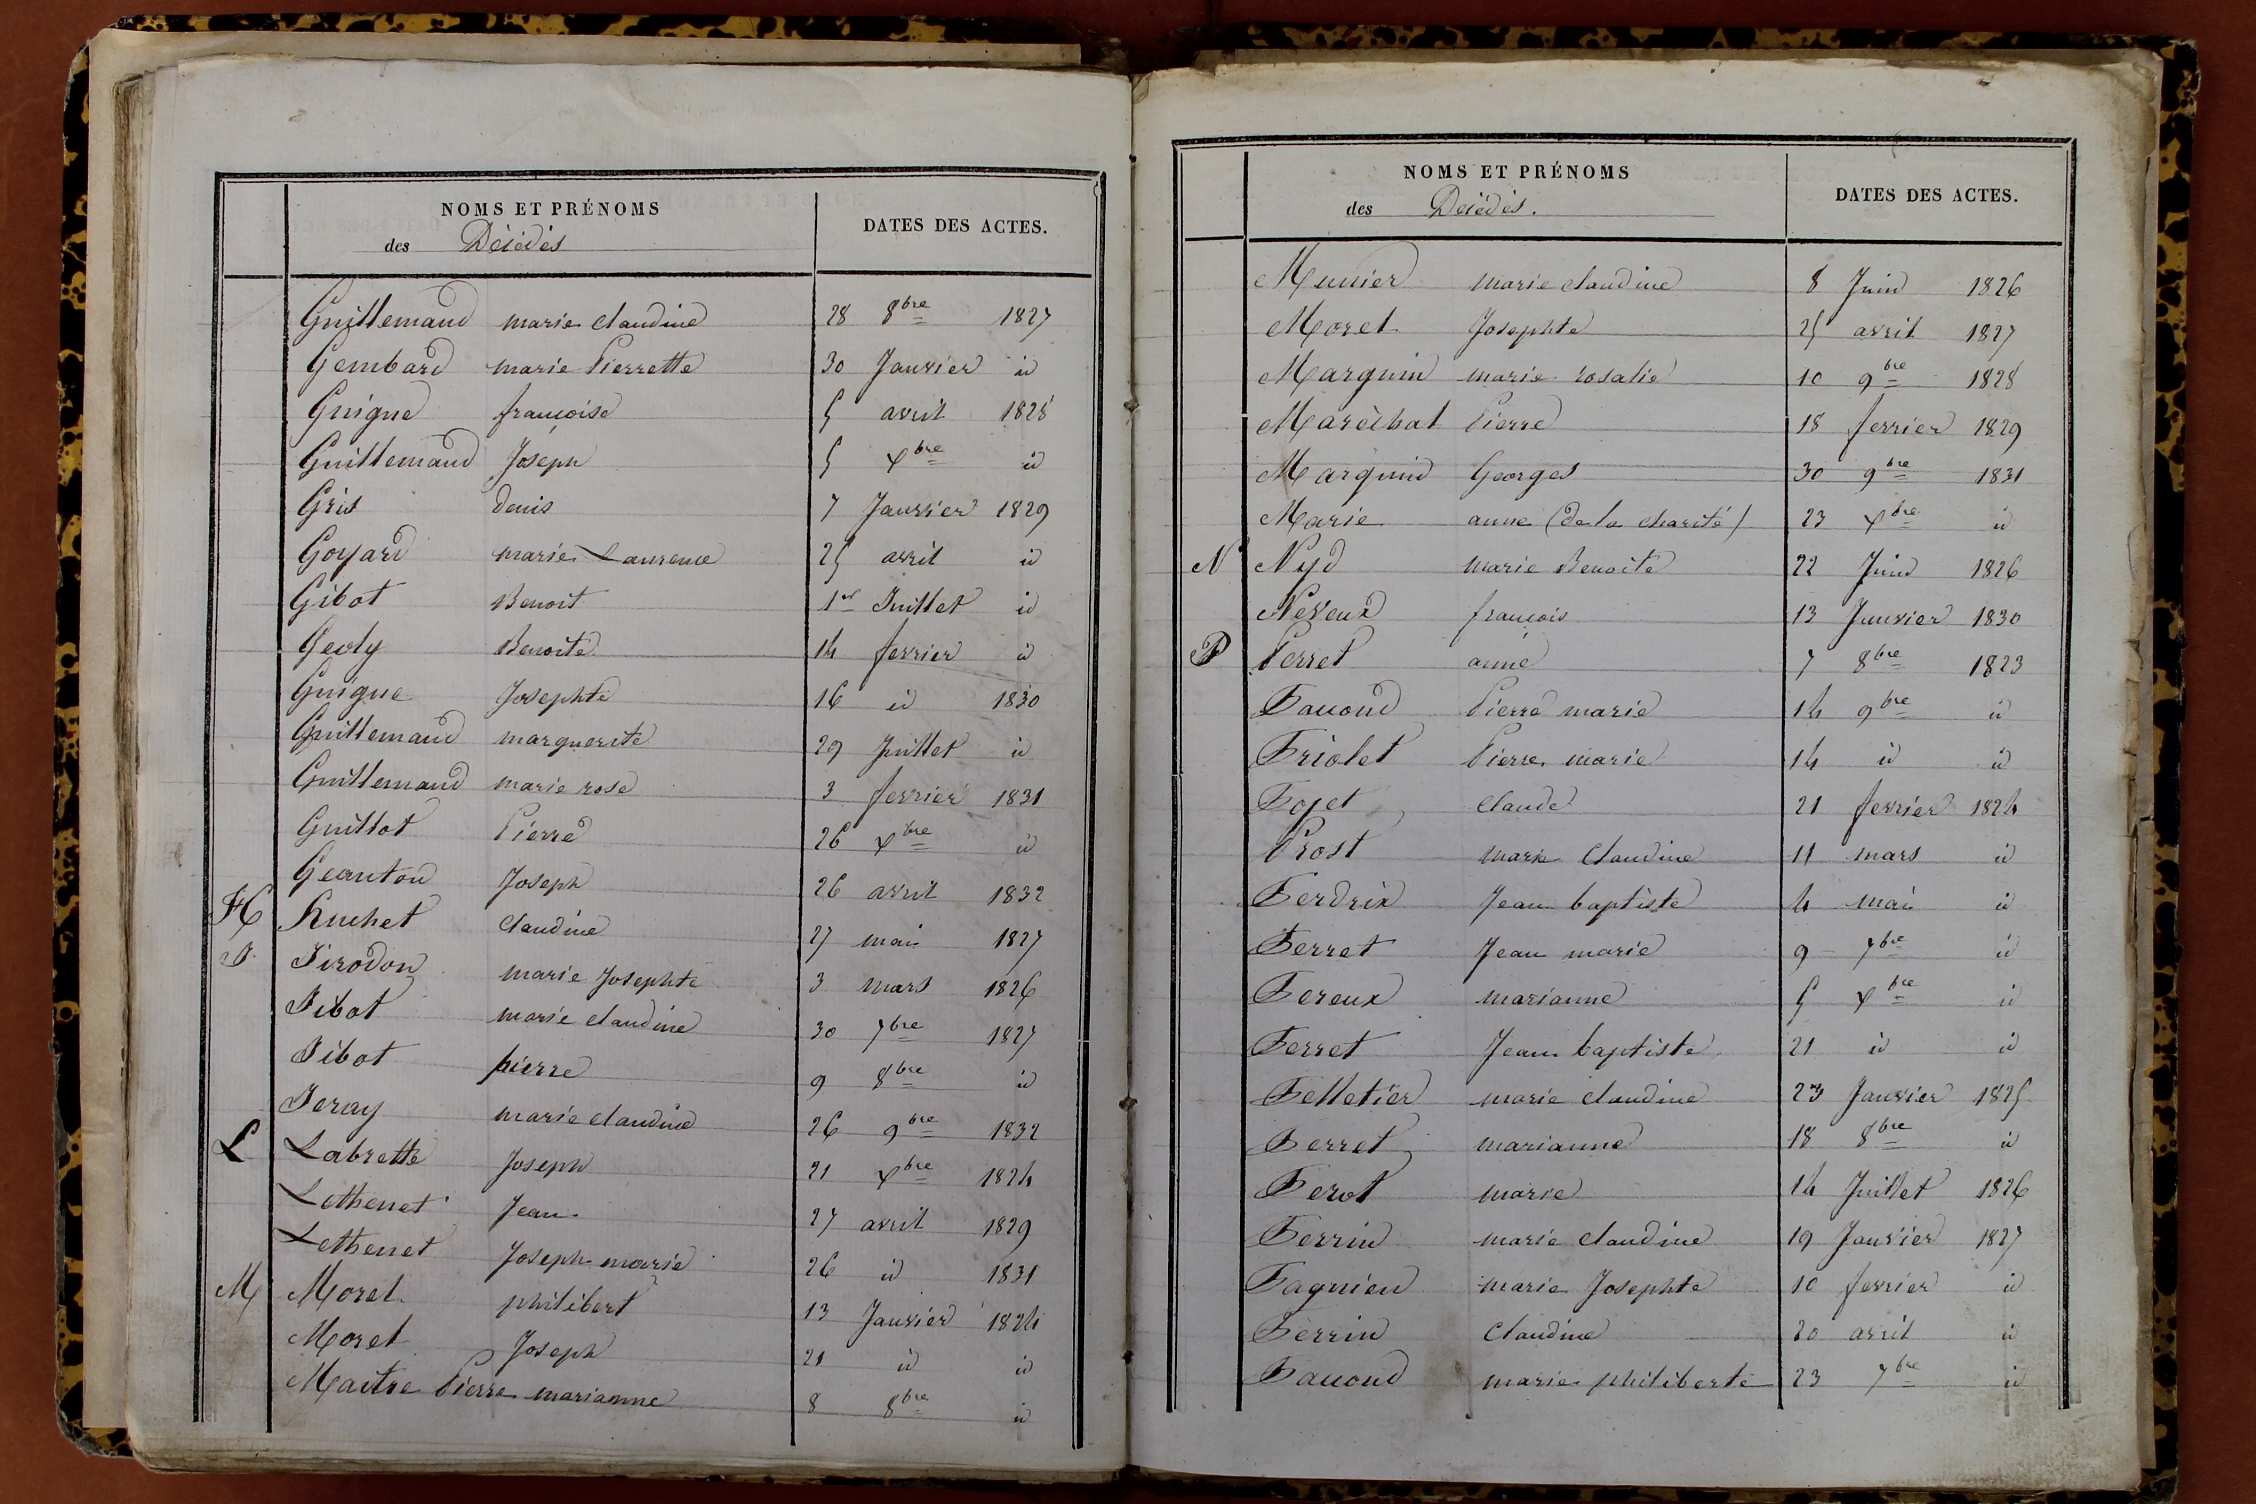 NOMS ET PRÉNOMS
des Décédés
DATES DES ACTES.
Guillemaud marie claudine 28 8bre 1827
Gembard marie Pierrette 30 Janvier id
Guigue françoise 5 avril 1828
Guillemaud Joseph 5 Xbre id
Gris denis 7 Janvier 1829
Goyard marie Laurence 25 avril id
Gibot Benoit 1er Juillet id
Benoite 14 fevrier id
Guigue Josephte 16 id 1830
Guillemaud marguerite 29 Juillet id
Guillemaud marie rose 3 fevrier 1831
Guillot Pierre 26 Xbre id
Geanton Joseph 26 avril 1832
H Huchet claudine 27 mai 1827
J Jirodon marie Josephte 3 mars 1826
Jibot marie claudine 30 7bre 1827
Jibot pierre 9 8bre id
Jeray marie claudine 26 9bre 1832
L Labrette Joseph 21 Xbre 1824
Lethenet Jean 27 avril 1829
Lethenet Joseph marie 26 id 1831
M Morel philibert 13 Janvier 1824
Morel Joseph 21 id id
Maitre Pierre marianne 8 8bre id
NOMS ET PRÉNOMS
des Décédés.
DATES DES ACTES.
Munier marie claudine 8 Juin 1826
Morel Josephte 25 avril 1827
Marguin marie rosalie 10 9bre 1828
Maréchal Pierre 18 fevrier 1829
Marguin Georges 30 9bre 1831
Marie anne (de la charité) 23 Xbre id
N Nyd marie Benoite 22 Juin 1826
Neveux françois 13 Janvier 1830
P Perret anne 7 8bre 1823
Pauond Pierre marie 14 9bre id
Priolet Pierre marie 14 id id
Pojet claude 21 fevrier 1824
Prost marie claudine 11 mars id
Perdrix Jean baptiste 4 mai id
Perret Jean marie 9 7bre id
Pereux marianne 5 Xbre id
Perret Jean baptiste 21 id id
Pelletier marie claudine 23 Janvier 1825
Perret marianne 18 8bre id
Perot marie 14 Juillet 1826
Perrin marie claudine 19 Janvier 1827
Pagnieu marie Josephte 10 fevrier id
Perrin claudine 20 avril id
Pauond marie philiberte 23 7bre id